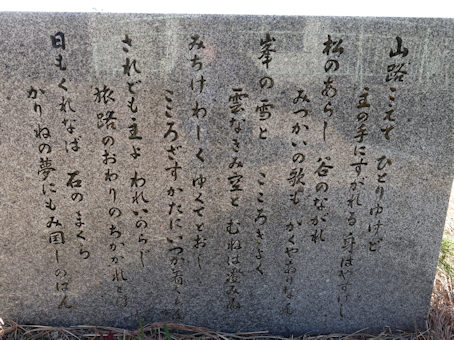 山路こえて ひとりゆけど
主の手にすがれる 身はやすけし
松のあらし 谷のながれ
みつかいの歌も かくやありなん
峯の雪と こころきよく
雲なきみ空と むねは澄みぬ
みちけわしく ゆくてとおし
こころざすかたに いつか着くらん
されども主よ われいのらじ
旅路のおわりの ちかかれとは
日もくれなば 石のまくら
かりねの夢にも み国しのばん